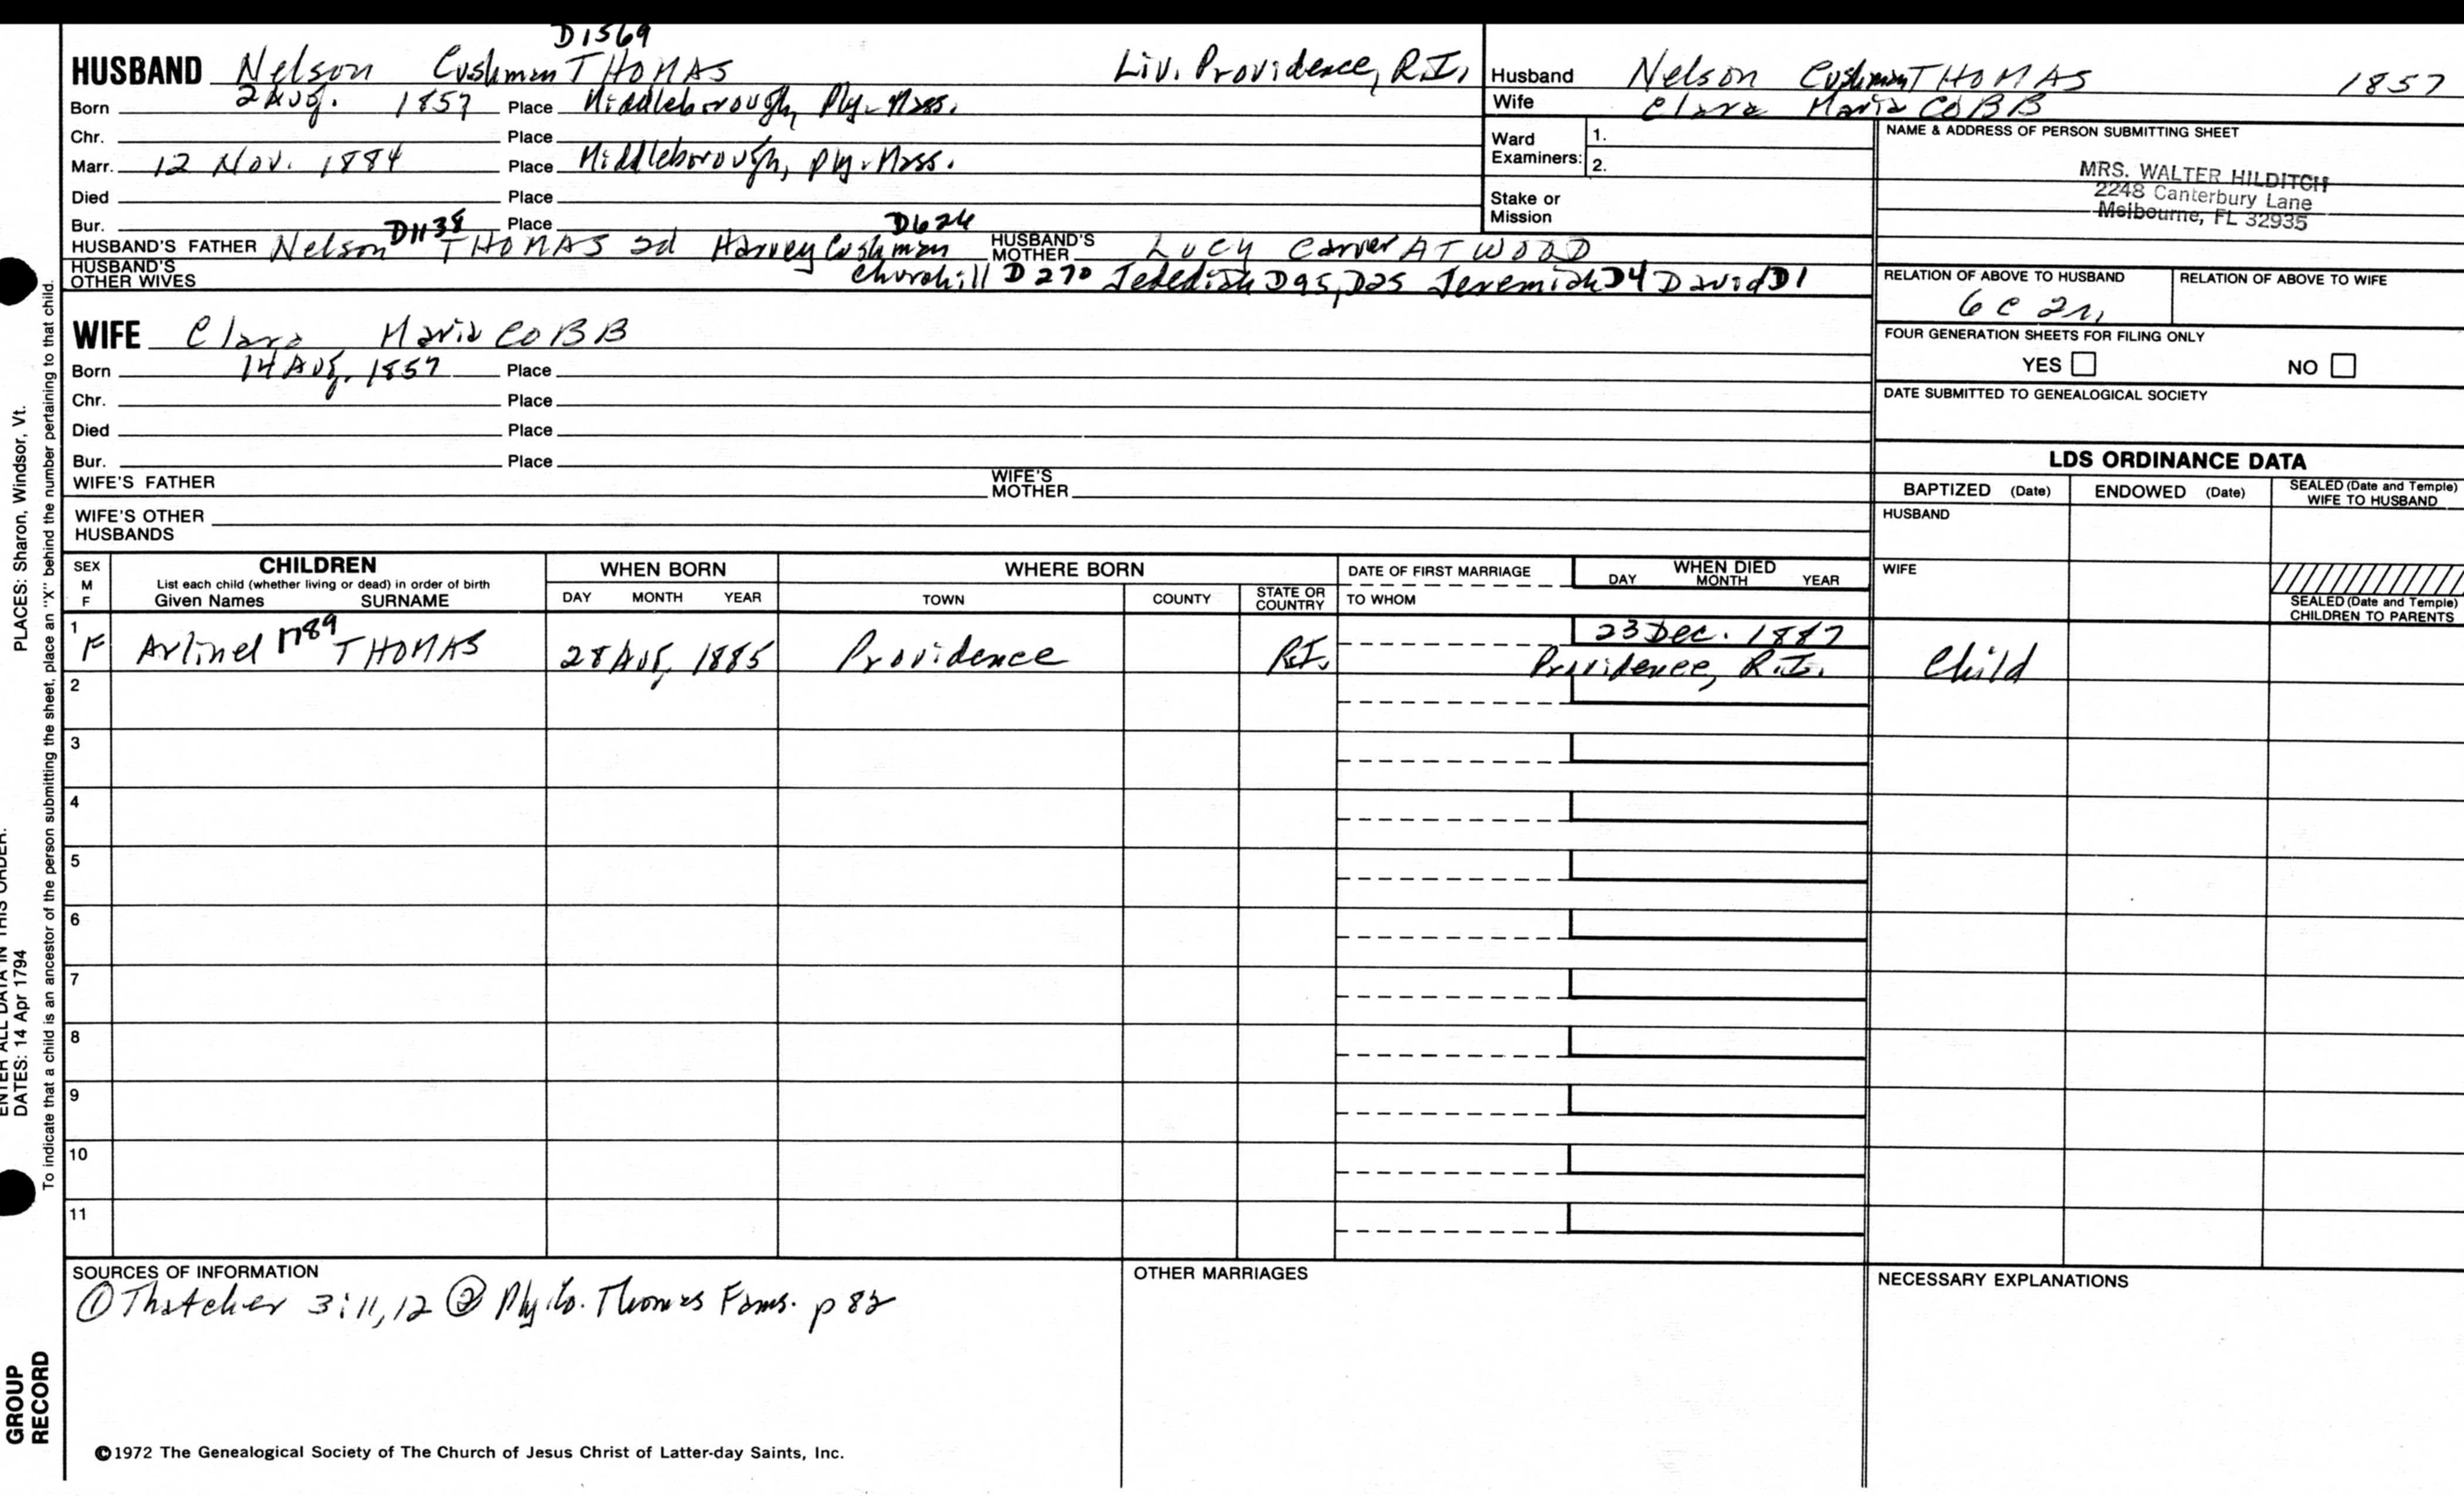 D1569
HUSBAND Nelson Cushman THOMAS Liv. Providence, R.I.
Born 2 Aug. 1857 Place Middleborough, Ply. Mass.
Chr. Place
Marr. 12 Nov. 1884 Place Middleborough, Ply. Mass.
Died Place
Bur. Place
HUSBAND'S FATHER Nelson D1138 THOMAS 2d Harvey Cushman D624 HUSBAND'S MOTHER Lucy Carver ATWOOD
HUSBAND'S OTHER WIVES Churchill D270 Jedediah D95, D25 Jeremiah D4 David D1
WIFE Clara Maria COBB
Born 14 Aug. 1857 Place
Chr. Place
Died Place
Bur. Place
WIFE'S FATHER WIFE'S MOTHER
WIFE'S OTHER HUSBANDS
Husband Nelson Cushman THOMAS 1857
Wife Clara Maria COBB
Ward Examiners: 1.
2.
Stake or Mission
NAME & ADDRESS OF PERSON SUBMITTING SHEET
MRS. WALTER HILDITCH
2248 Canterbury Lane
Melbourne, FL 32935
RELATION OF ABOVE TO HUSBAND RELATION OF ABOVE TO WIFE
6 C 2r,
FOUR GENERATION SHEETS FOR FILING ONLY
YES NO
DATE SUBMITTED TO GENEALOGICAL SOCIETY
LDS ORDINANCE DATA
BAPTIZED (Date) ENDOWED (Date) SEALED (Date and Temple) WIFE TO HUSBAND
HUSBAND
WIFE
SEALED (Date and Temple) CHILDREN TO PARENTS
SEX M F CHILDREN WHEN BORN WHERE BORN DATE OF FIRST MARRIAGE WHEN DIED
List each child (whether living or dead) in order of birth
Given Names SURNAME DAY MONTH YEAR TOWN COUNTY STATE OR COUNTRY TO WHOM DAY MONTH YEAR
1 F Arlinel 1789 THOMAS 28 Aug, 1885 Providence R.I. 23 Dec. 1887
Providence, R.I. Child
2
3
4
5
6
7
8
9
10
11
SOURCES OF INFORMATION
① Thatcher 3:11,12 ② Ply. Co. Thomas Fams. p 82
OTHER MARRIAGES
NECESSARY EXPLANATIONS
©1972 The Genealogical Society of The Church of Jesus Christ of Latter-day Saints, Inc.
GROUP RECORD
ENTER ALL DATA IN THIS ORDER:
DATES: 14 Apr 1794 PLACES: Sharon, Windsor, Vt.
To indicate that a child is an ancestor of the person submitting the sheet, place an "X" behind the number pertaining to that child.